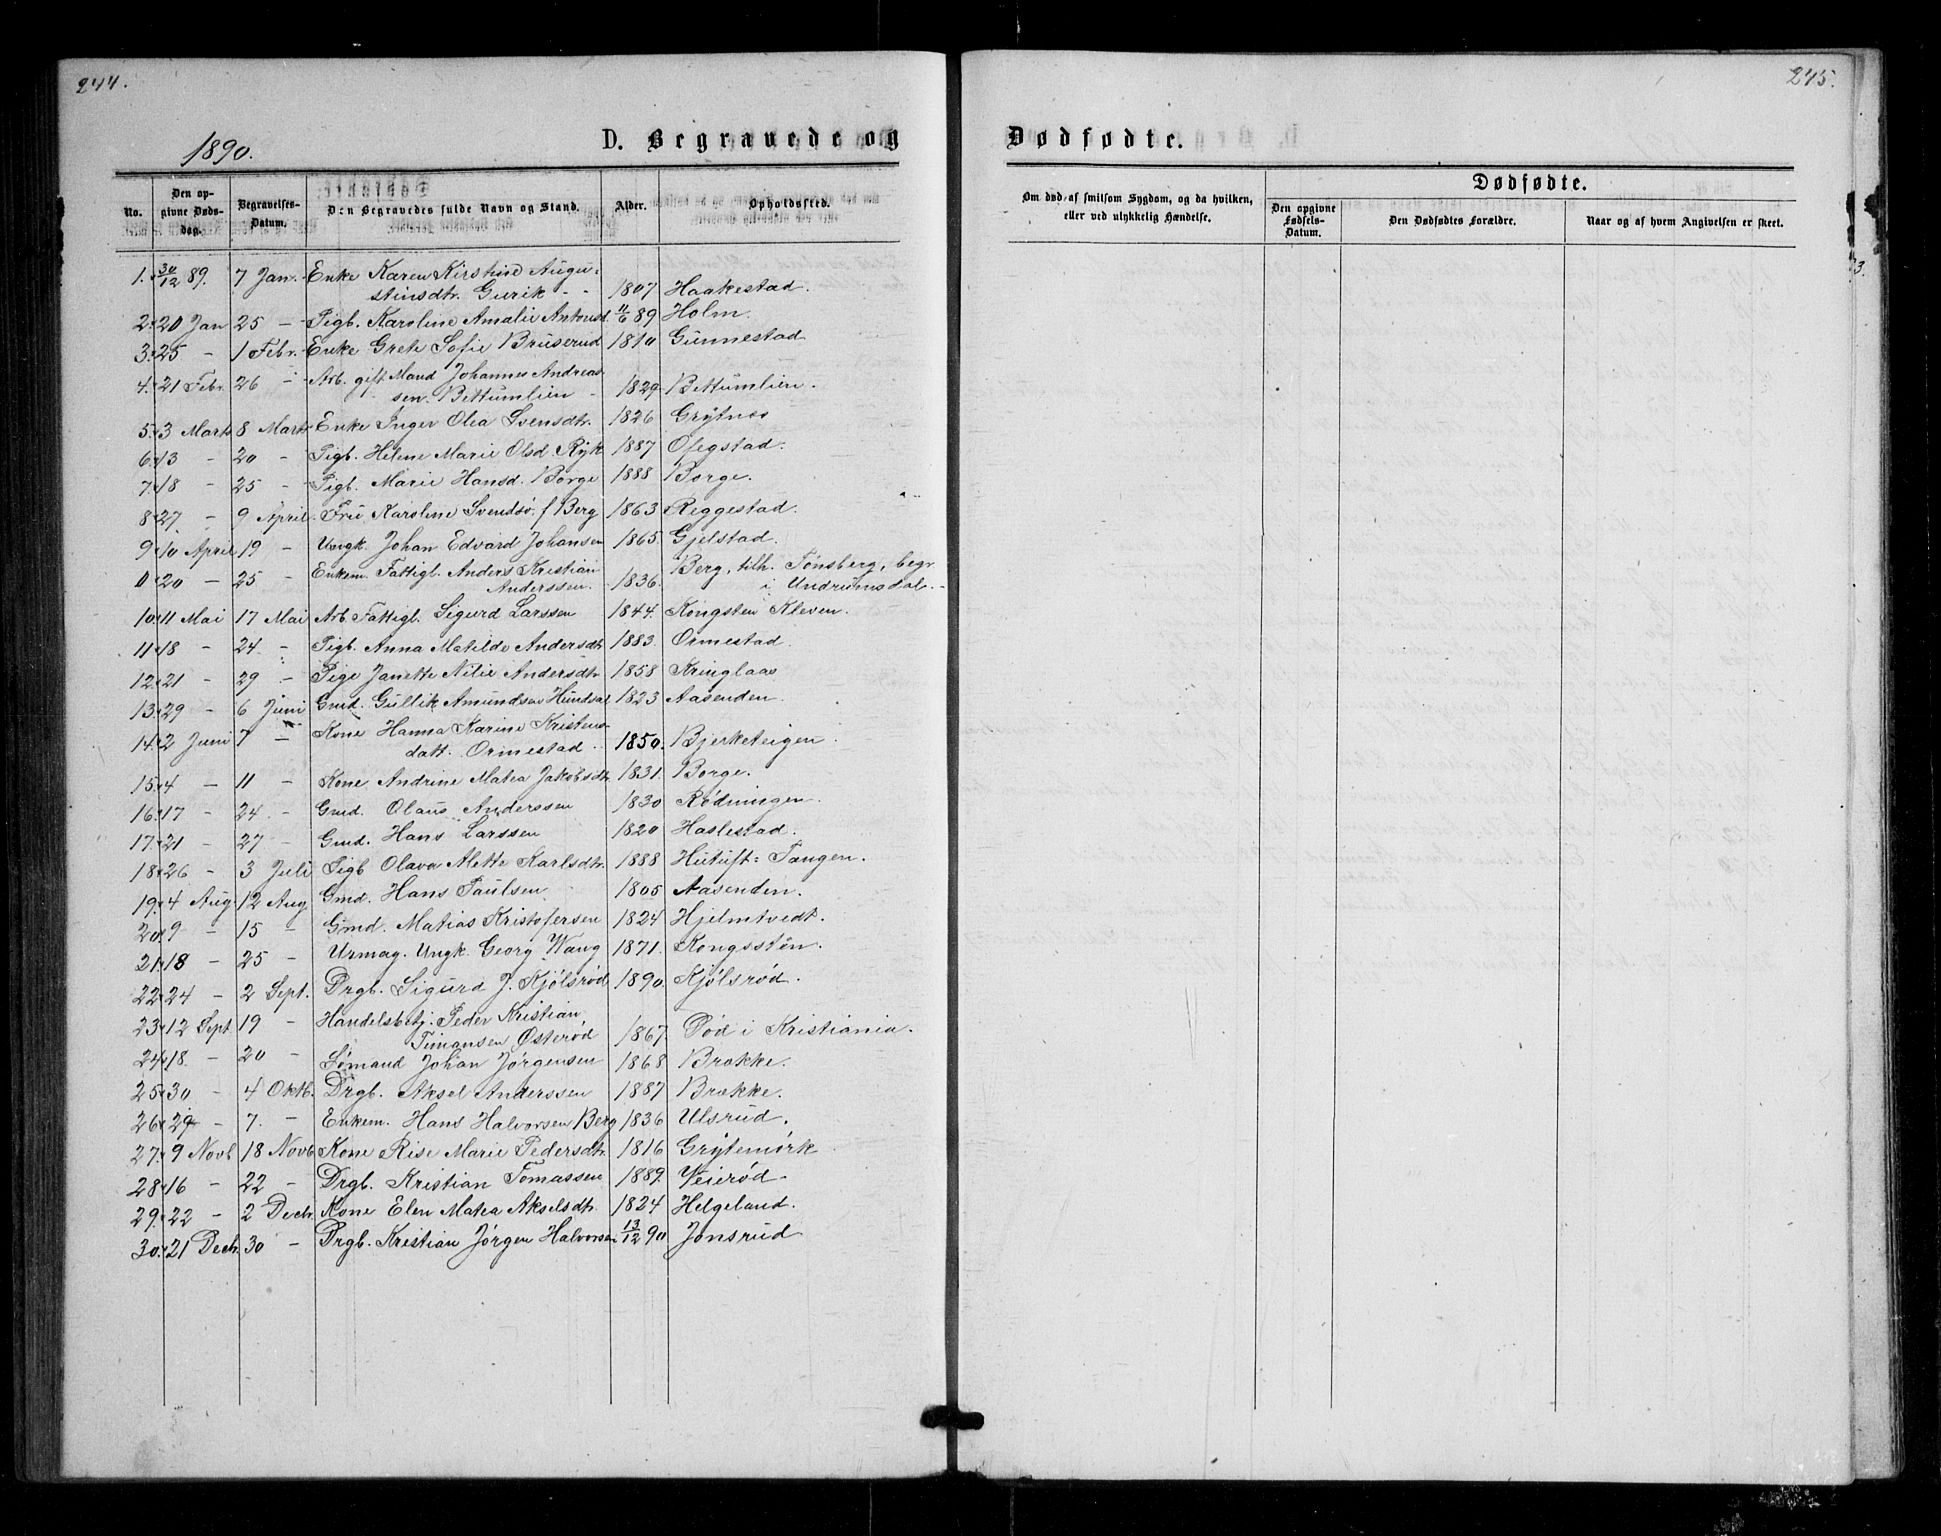 244.
1890.
D. Begravede og
No.
Den opgivne Dødsdag.
Begravelses-Datum.
Den Begravedes fulde Navn og Stand.
Alder.
Opholdssted.
1. 30/12 89. 7 Jan. Enke Karen Kirstine Augu-
stinsdtr. Gurik - - 1807 Haakestad.
2. 20 Jan 25 - Pigb. Karoline Amalie Antonsd 11/6 89 Holm.
3. 25 - 1 Febr. Enke Grete Sofie Bruserud 1810 Gunnestad
4. 21 Febr. 26 - Arb. gift Mand Johannes Andreas-
sen. Bettumlien - 1829 Bettumlien.
5. 3 Marts 8 Marts Enke Inger Olea Svensdtr. 1826 Grytnes
6. 13 - 20 - Pigb. Helene Marie Olsd. Ryk 1887 Ofegstad.
7. 18 - 25 - Pigb. Marie Hansd. Borge 1888 Borge.
8. 27 - 9 April. Fru Karoline Svendsø. f Berg 1863 Reggestad.
9. 10 April 19 - Ungk. Johan Edvard Johansen 1865. Gjelstad.
0. 20 - 25 - Enkem. Fattigl. Anders Kristian Berg, tilh. Tønsberg, begr
Anderssen. 1836. i Undrumsdal.
10. 11 Mai 17 Mai Arb. Fattigl. Sigurd Larssen 1844. Kongsten Kleven.
11. 18 - 24. - Pigb. Anna Matilde Andersdtr. 1883. Ormestad.
12. 21 - 29 - Pige Janette Nilie Andersdtr. 1858 Kringlaas
13. 29 - 6 Juni Gmd. Gullik Amundsen Hundsal 1823 Aasenden.
14. 2 Juni 7 - Kone Hanna Karine Kristens-
datt. Ormestad. 1850. Bjerketeigen.
15. 4 - 11 - Kone Andrine Matea Jakobsdtr. 1831. Borge.
16. 17 - 24 - Gmd. Olaus Anderssen 1830 Rødningen.
17. 21 - 27 - Gmd. Hans Larssen 1820 Haslestad.
18. 26 - 3 Juli Pigb Olava Alette Karlsdtr. 1888 Hutuft= Tangen.
19. 4 Aug. 12 Aug Gmd. Hans Paulsen 1805 Aasenden.
20. 9 - 15 - Gmd. Matias Kristofersen 1824 Hjelmtvedt.
21. 18 - 25 - Urmag. Ungk. Georg Wang 1871. Kongsstén.
22. 24 - 2 Sept. Drgb. Sigurd J. Kjølsrød 1890. Kjølsrød.
23. 12 Sept 19 - Handelsbetj. Peder Kristian
Timansen Østerød 1867. Død i Kristiania.
24. 18. - 20 - Sømand Johan Jørgensen 1868 Brække.
25. 30 - 4 Oktb. Drgb. Aksel Anderssen 1887 Brække.
26. 29 - 7. - Enkem. Hans Halvorsen Berg 1836 Ulsrud.
27. 9 Novb 18 Novb. Kone Rise Marie Pedersdtr. 1816 Grytemørk
28. 16 - 22 - Drgb. Kristian Tomassen 1889. Veierød.
29. 22 - 2 Dech. Kone Elen Matea Akselsdtr. 1824 Helgeland.
30. 21 Dech. 30 - Drgb. Kristian Jørgen Halvorsen 13/12 90 Jonsrud
245.
Dødfødte.
Om død af smitsom Sygdom, og da hvilken,
eller ved ulykkelig Hændelse.
Dødfødte.
Den opgivne Fødsels-Datum.
Den Dødfødtes Forældre.
Naar og af hvem Angivelsen er skeet.
3.